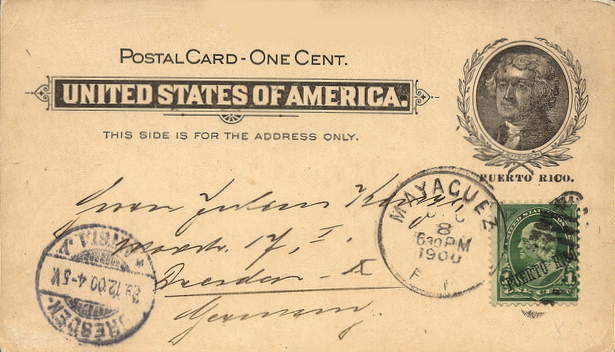 POSTAL CARD - ONE CENT.
UNITED STATES OF AMERICA.
THIS SIDE IS FOR THE ADDRESS ONLY.
PUERTO RICO.
MAYAGUEZ
8
630 PM
1900
PUERTO RICO
Herrn Julius
17, I.
Dresden - A
Germany.
DRESDEN-
29.12.00.4-5V.